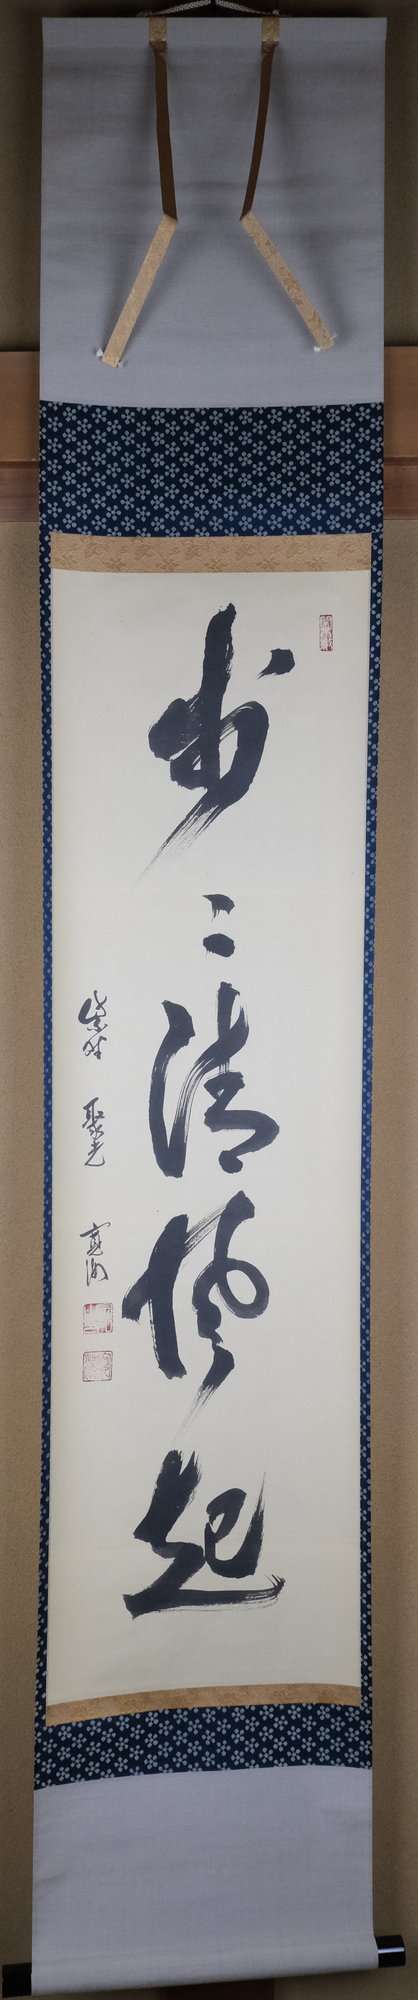 歩々清風起
紫野 聚光 寛海